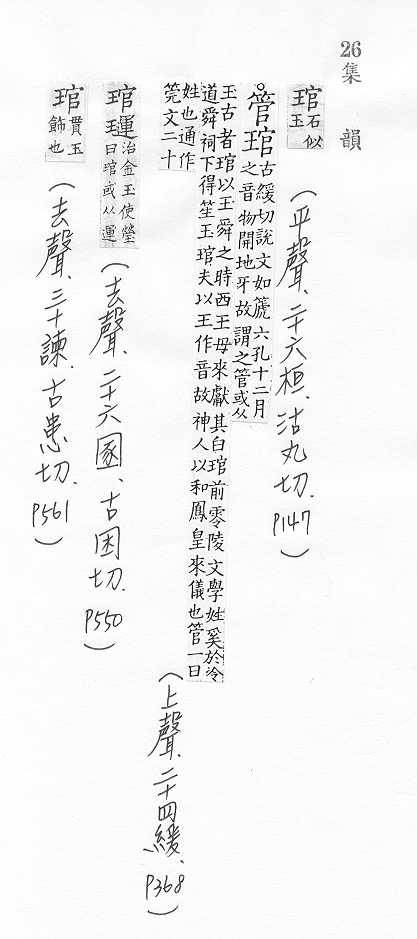 26集 韻
琯
石似
玉
(平聲、二十六桓、沽丸切. P147)
管琯
古緩切說文如篪六孔十二月
之音物開地牙故謂之管或从
玉古者琯以玉舜之時西王母來獻其白琯前零陵文學姓奚於泠
道舜祠下得笙玉琯夫以王作音故神人以和鳳皇來儀也管一曰
姓也通作
筦文二十
(上聲、二十四緩、P368)
琯
治金玉使瑩
曰琯或从運
(去聲、二十六圂、古困切. P550)
琯
貫玉
飾也
(去聲、三十諫、古患切. P561)